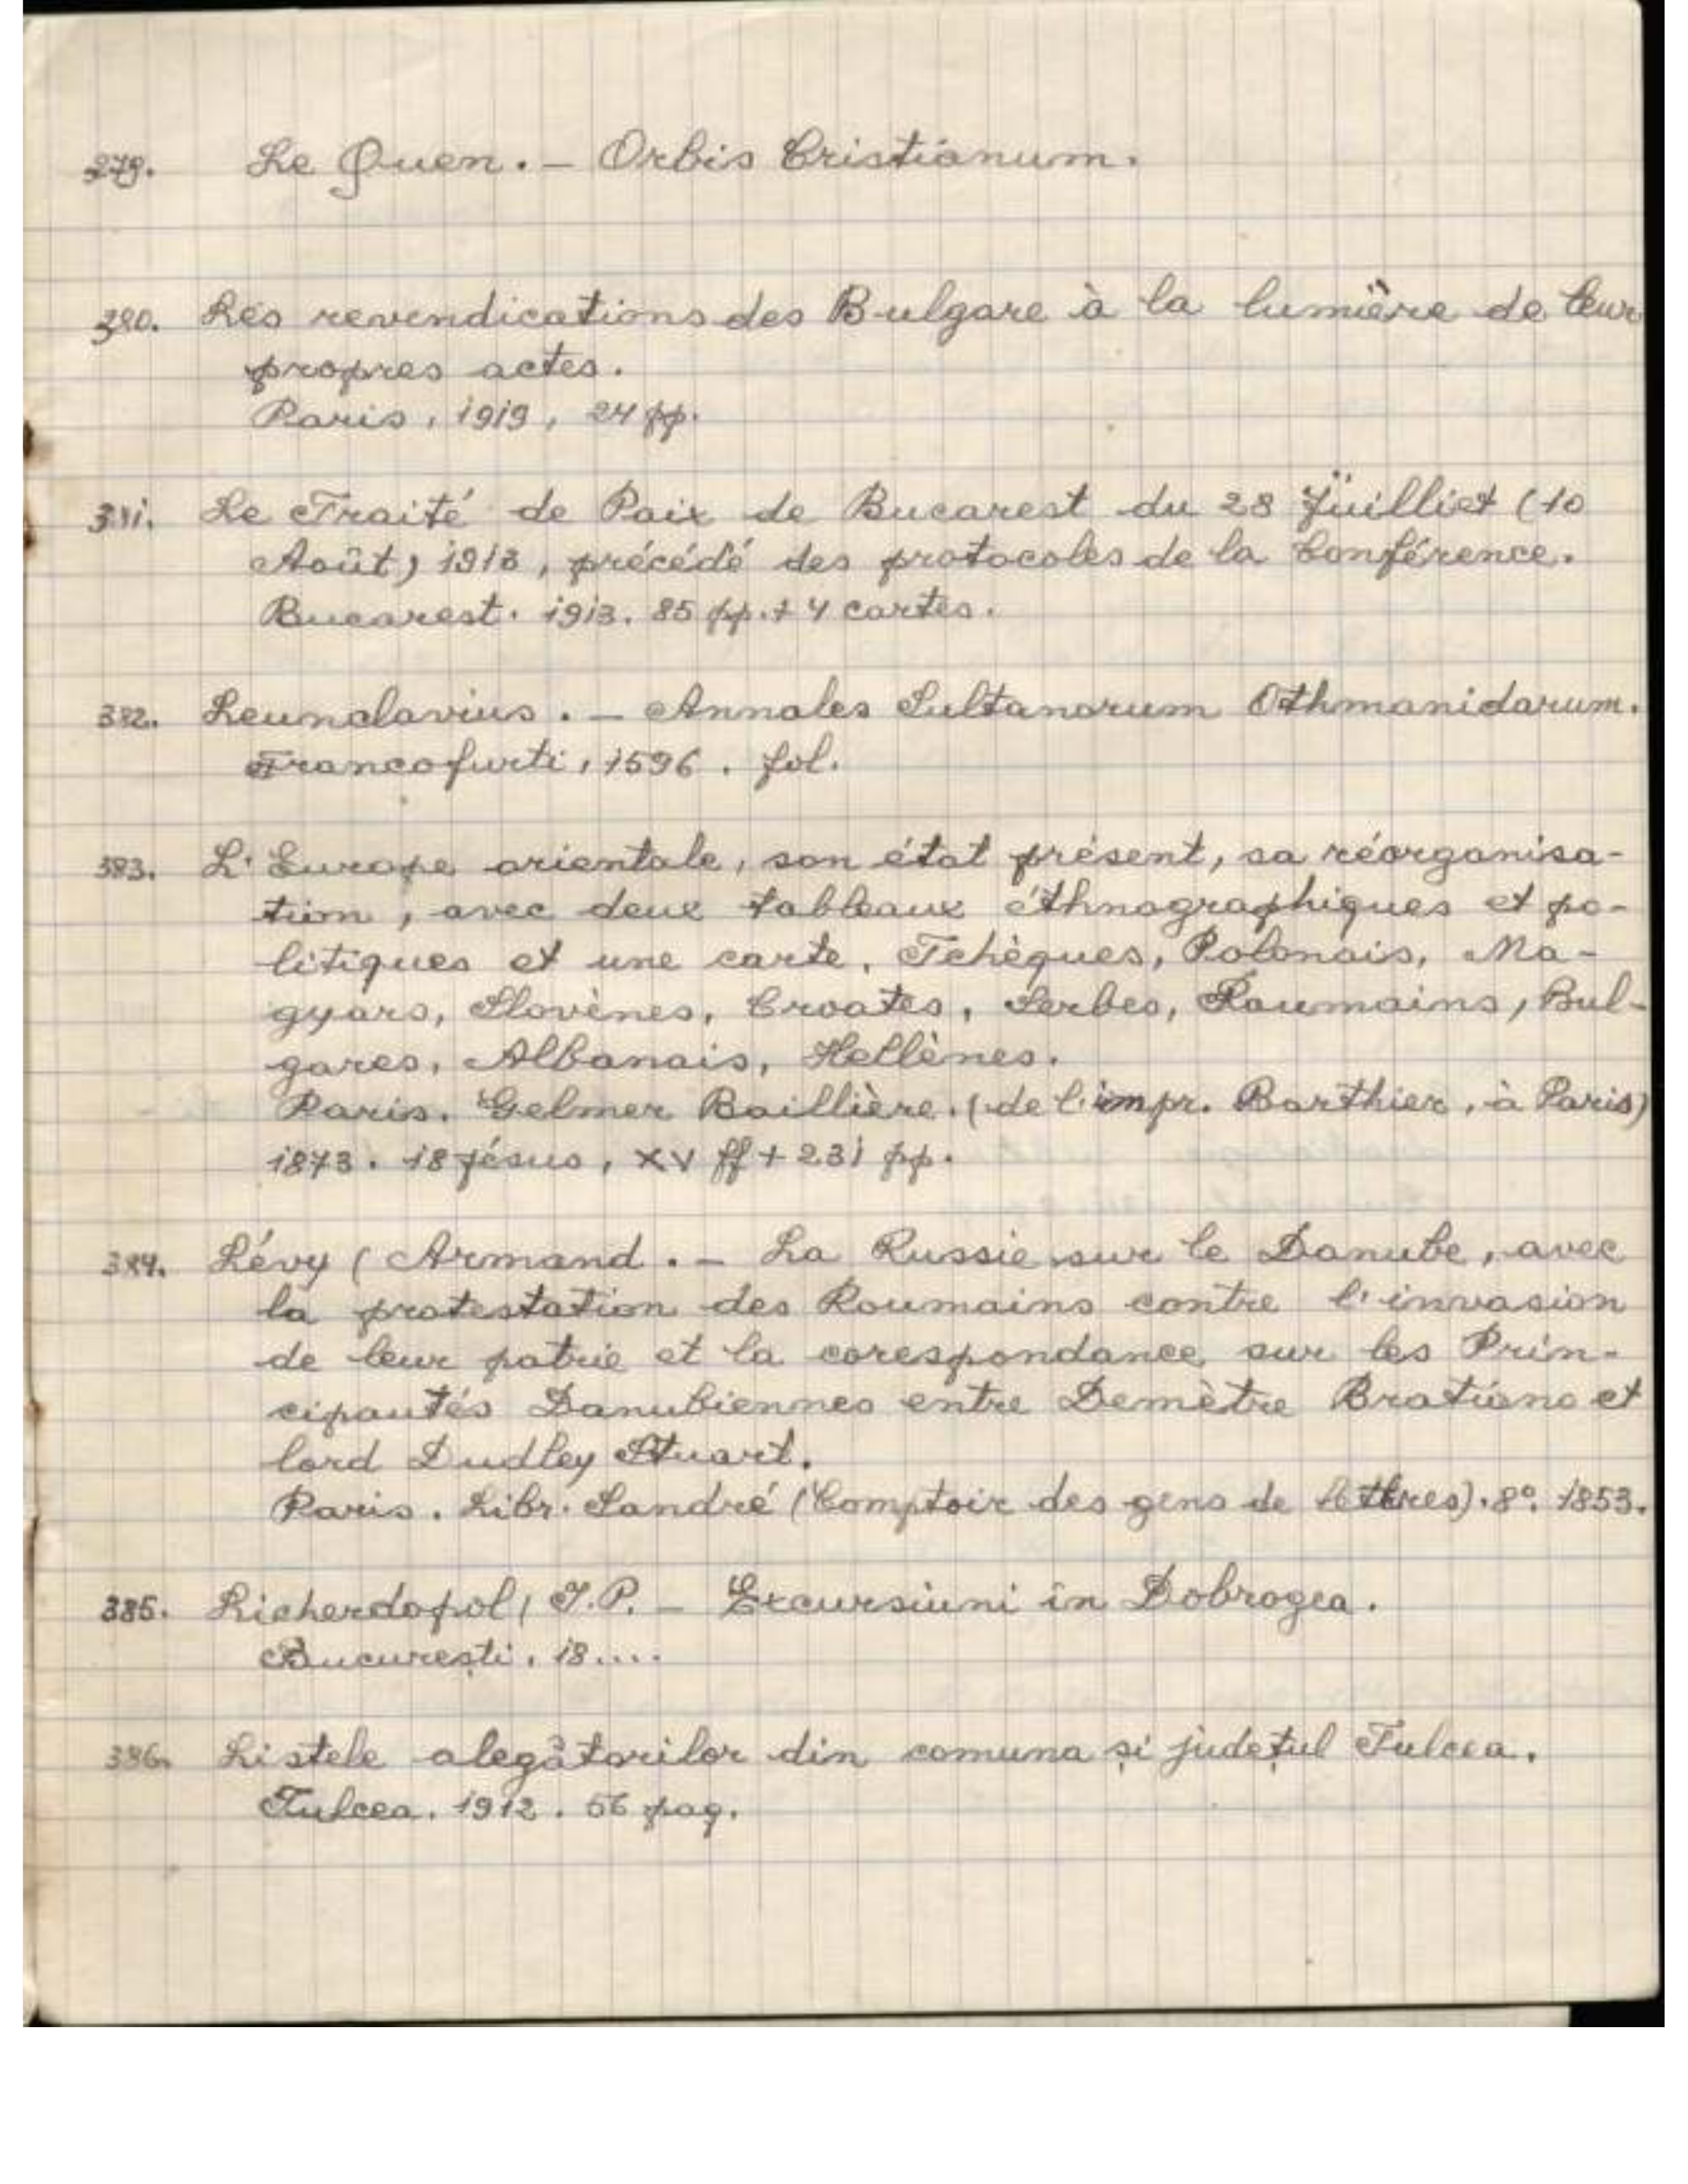 379. Le Quen. – Orbis Cristianum.
380. Les revendications des Bulgare à la lumière de leur
propres actes.
Paris, 1919, 24 pp.
381. Le Traité de Paix de Bucarest du 28 Juilliet (10
Août) 1913, précédé des protocoles de la Conférence.
Bucarest. 1913. 85 pp. + 4 cartes.
382. Leunclavius. – Annales Sultanorum Othmanidarum.
Francofurti, 1596. fol.
383. L'Europe orientale, son état présent, sa réorganisa-
tion, avec deux tableaux éthnographiques et po-
litiques et une carte. Tchèques, Polonais, Ma-
gyars, Slovènes, Croates, Serbes, Roumains, Bul-
gares, Albanais, Hellènes.
Paris. Gelmer Baillière. (de l'impr. Barthier, à Paris)
1873. 18 jésus, XV ff + 231 pp.
384. Lévy (Armand. – La Russie sur le Danube, avec
la protestation des Roumains contre l'invasion
de leur patrie et la corespondance sur les Prin-
cipautés Danubiennes entre Demètre Bratiano et
lord Dudley Stuart.
Paris. Libr. Sandré (Comptoir des gens de lettres). 8º. 1853.
385. Licherdopol, I.P. – Excursiuni în Dobrogea.
București, 18....
386. Listele alegătorilor din comuna și județul Tulcea.
Tulcea. 1912. 56 pag.